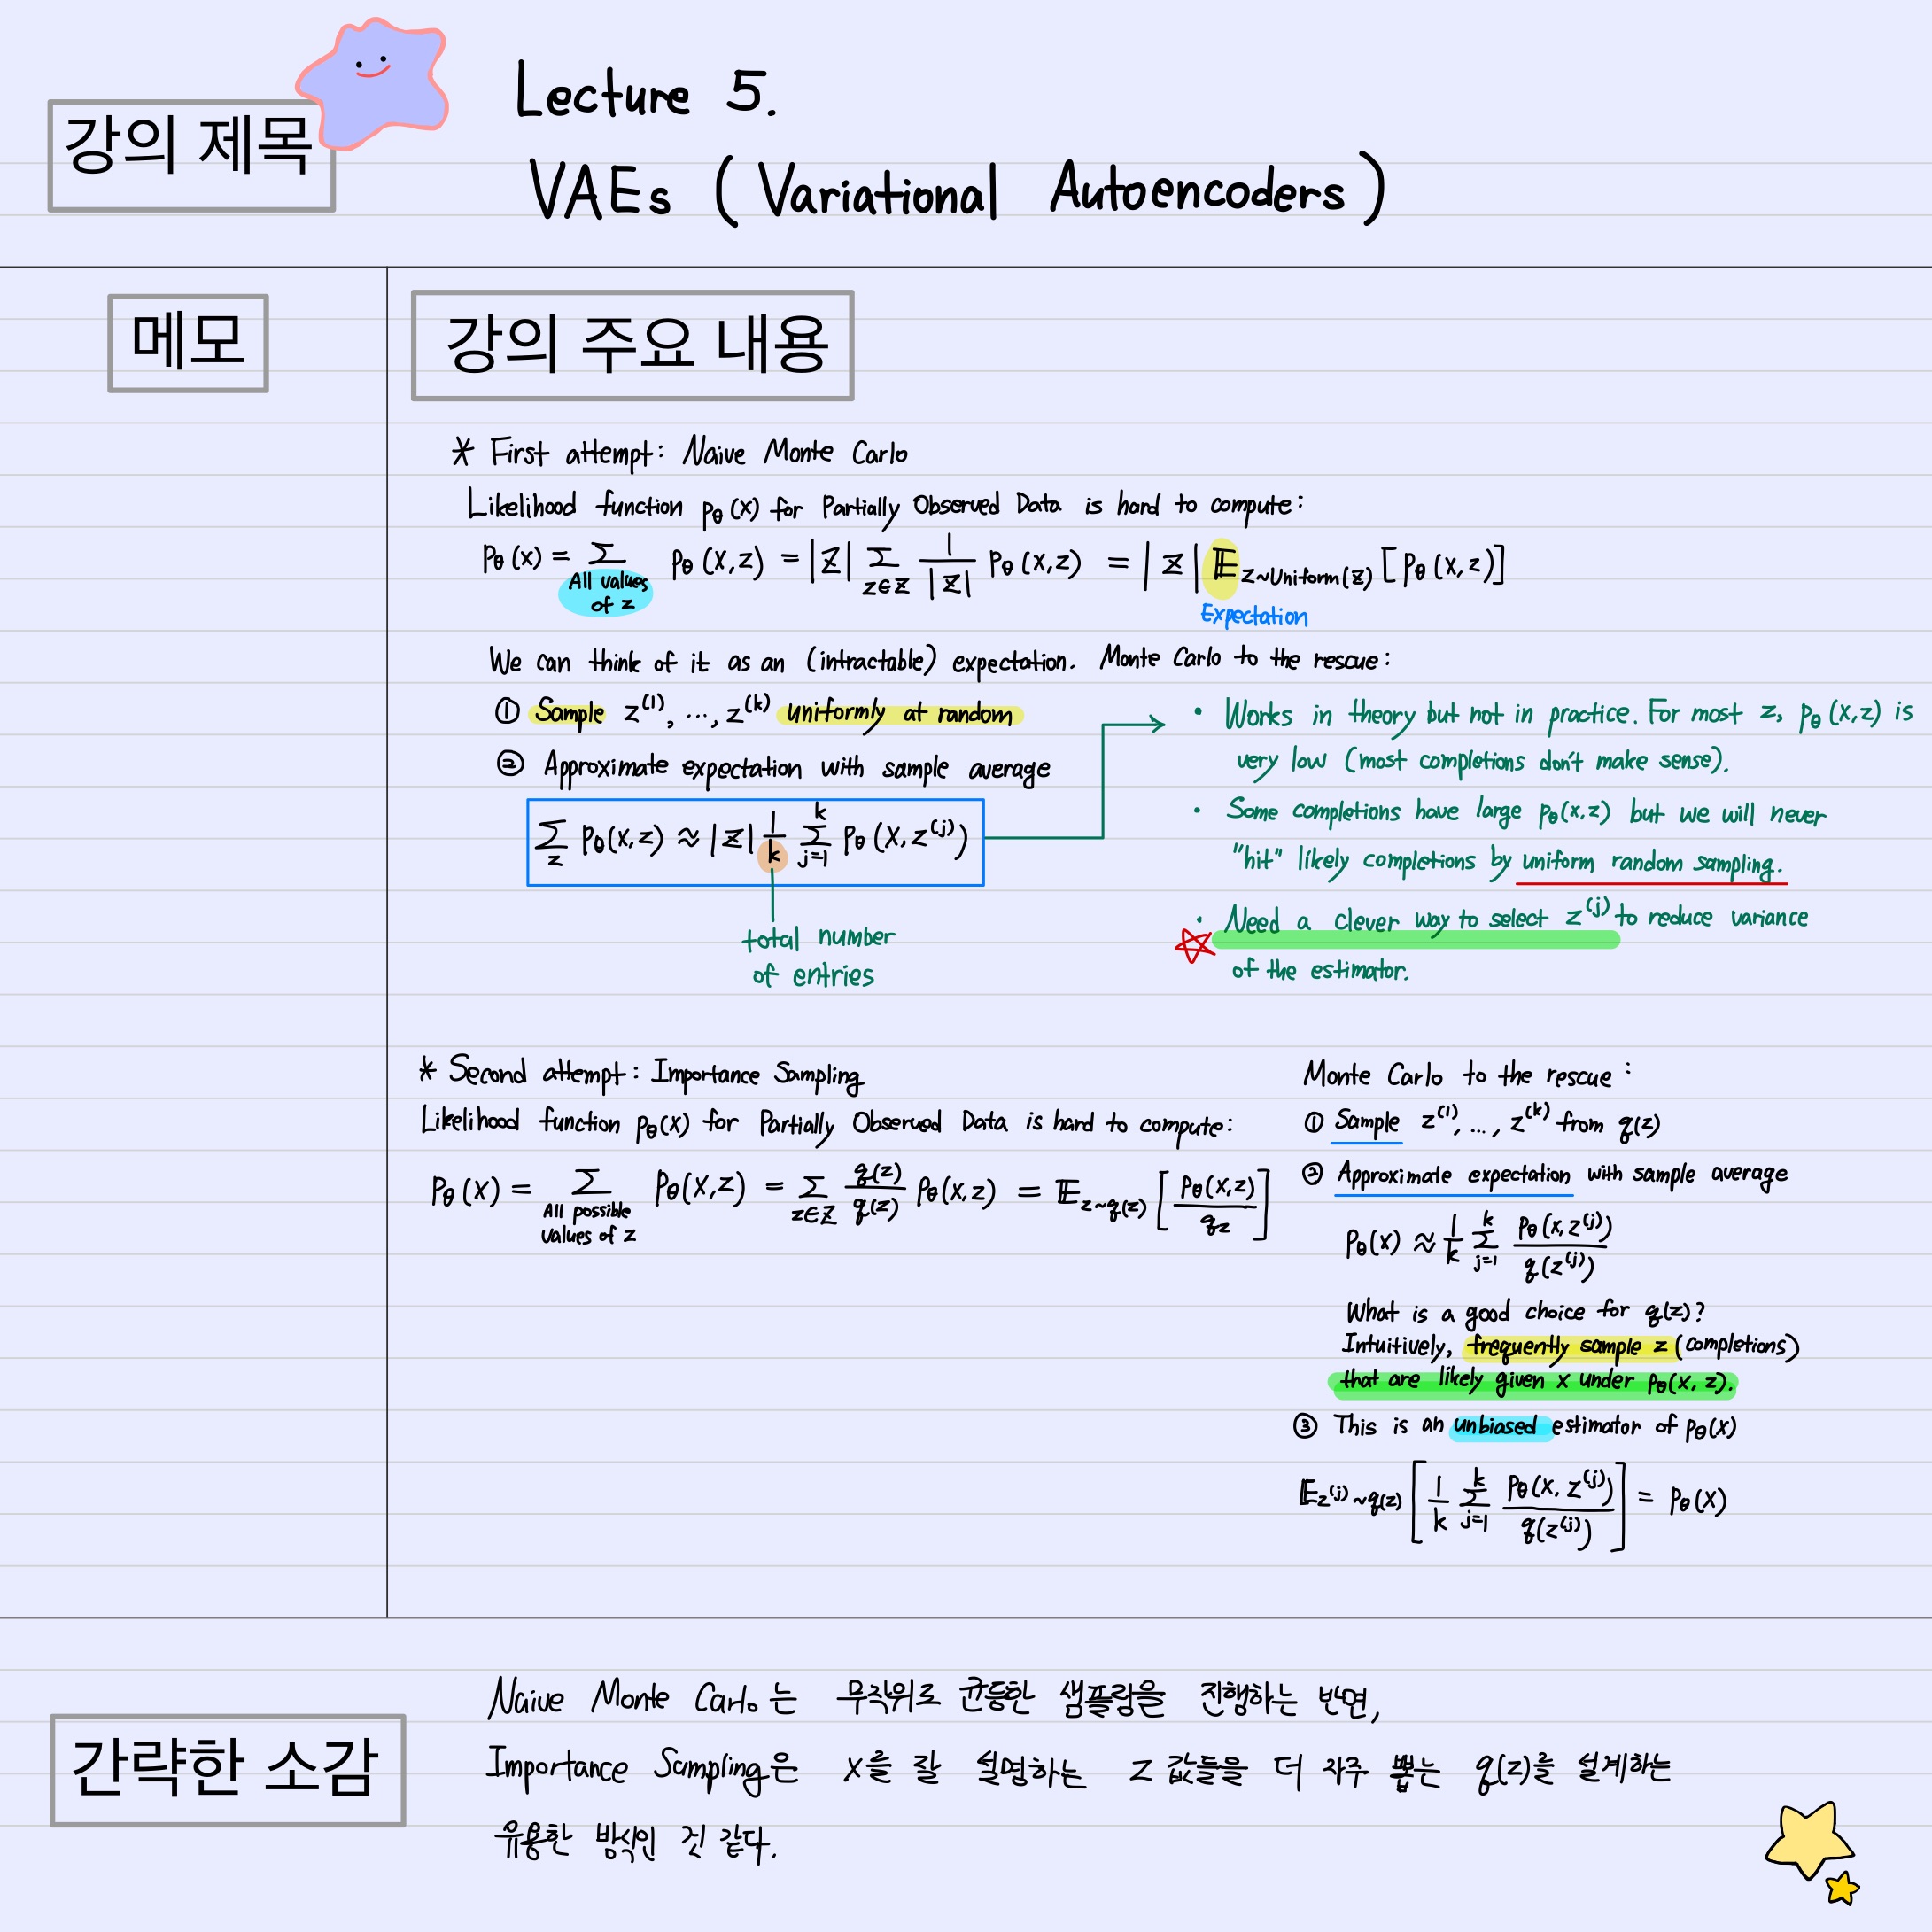 강의 제목
Lecture 5.
VAEs (Variational Autoencoders)
메모
강의 주요 내용
* First attempt: Naive Monte Carlo
Likelihood function pθ(x) for Partially Observed Data is hard to compute:
pθ(x) = Σ_{All values of z} pθ(x,z) = |Z| Σ_{z∈Z} 1/|Z| pθ(x,z) = |Z| 𝔼_{z~Uniform(Z)} [pθ(x,z)]
Expectation
We can think of it as an (intractable) expectation. Monte Carlo to the rescue:
① Sample z^(1), ..., z^(k) uniformly at random
② Approximate expectation with sample average
Σ_z pθ(x,z) ≈ |Z| 1/k Σ_{j=1}^{k} pθ(x,z^(j))
total number
of entries
• Works in theory but not in practice. For most z, pθ(x,z) is
very low (most completions don't make sense).
• Some completions have large pθ(x,z) but we will never
"hit" likely completions by uniform random sampling.
• Need a clever way to select z^(j) to reduce variance
of the estimator.
* Second attempt: Importance Sampling
Likelihood function pθ(x) for Partially Observed Data is hard to compute:
pθ(x) = Σ_{All possible values of z} pθ(x,z) = Σ_{z∈Z} q(z)/q(z) pθ(x,z) = 𝔼_{z~q(z)} [pθ(x,z)/qz]
Monte Carlo to the rescue:
① Sample z^(1), ..., z^(k) from q(z)
② Approximate expectation with sample average
pθ(x) ≈ 1/k Σ_{j=1}^{k} pθ(x,z^(j))/q(z^(j))
What is a good choice for q(z)?
Intuitively, frequently sample z (completions)
that are likely given x under pθ(x, z).
③ This is an unbiased estimator of pθ(x)
𝔼_{z^(j)~q(z)} [1/k Σ_{j=1}^{k} pθ(x, z^(j))/q(z^(j))] = pθ(x)
간략한 소감
Naive Monte Carlo는 무작위로 균등한 샘플링을 진행하는 반면,
Importance Sampling은 x를 잘 설명하는 z 값들을 더 자주 뽑는 q(z)를 설계하는
유용한 방식인 것 같다.